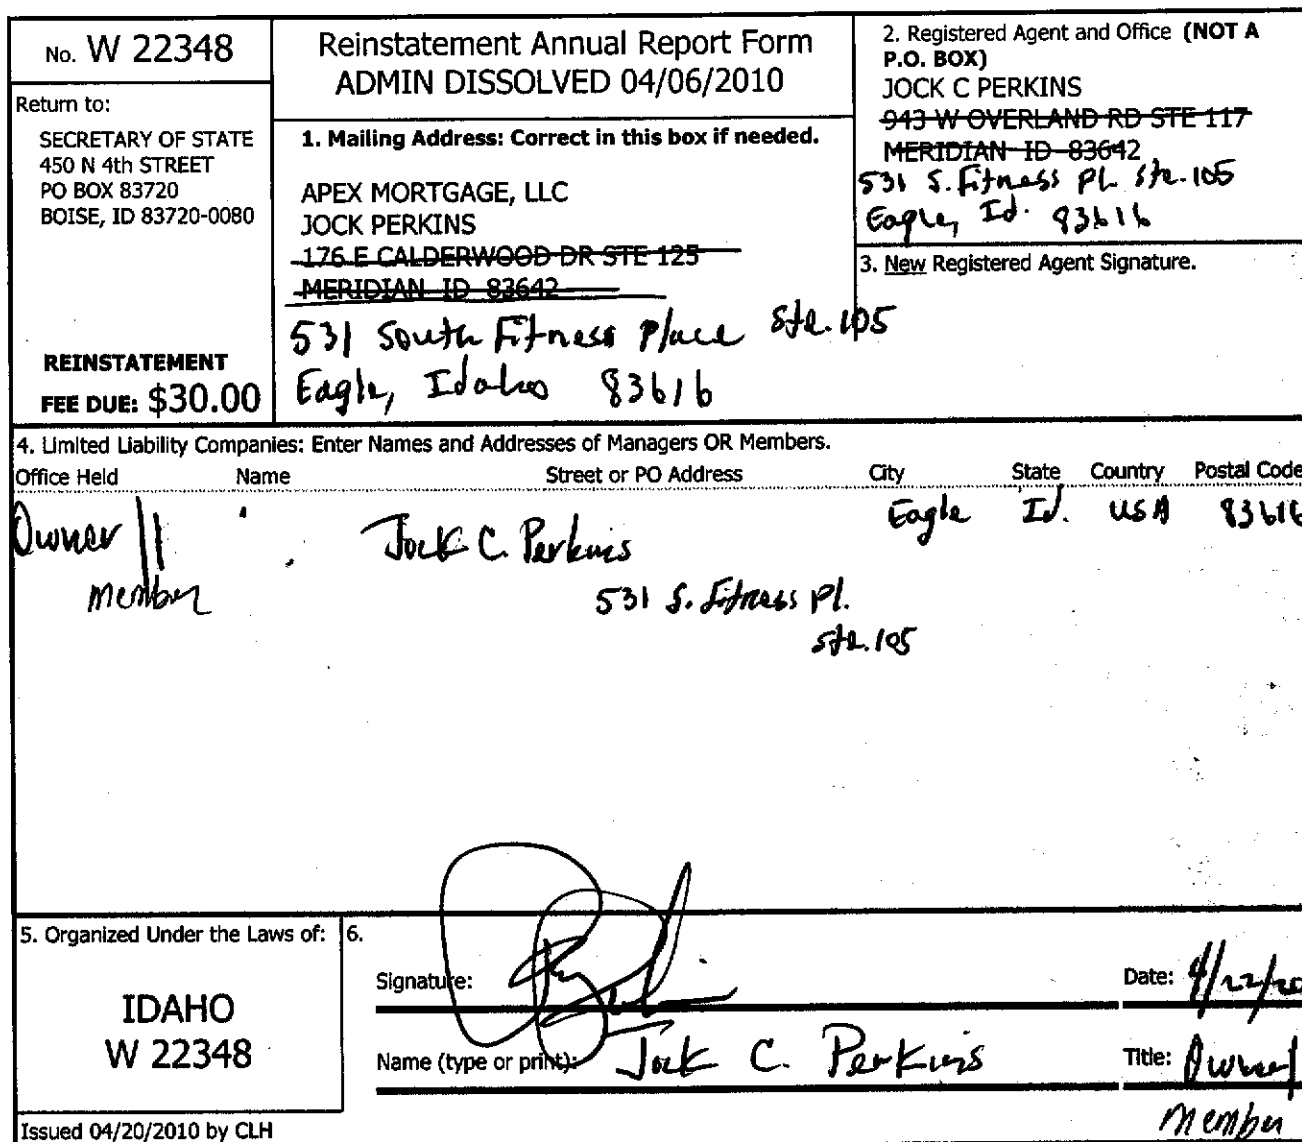 No. W 22348
Return to:
SECRETARY OF STATE
450 N 4th STREET
PO BOX 83720
BOISE, ID 83720-0080
REINSTATEMENT
FEE DUE: $30.00
Reinstatement Annual Report Form
ADMIN DISSOLVED 04/06/2010
1. Mailing Address: Correct in this box if needed.
APEX MORTGAGE, LLC
JOCK PERKINS
176 E CALDERWOOD DR STE 125
MERIDIAN ID 83642
531 South Fitness Place Ste. 105
Eagle, Idaho 83616
2. Registered Agent and Office (NOT A
P.O. BOX)
JOCK C PERKINS
943 W OVERLAND RD STE 117
MERIDIAN ID 83642
531 S. Fitness Pl. Ste. 105
Eagle, Id. 83616
3. New Registered Agent Signature.
4. Limited Liability Companies: Enter Names and Addresses of Managers OR Members.
Office Held Name Street or PO Address City State Country Postal Code
Owner Jock C. Perkins Eagle Id. USA 83616
member 531 S. Fitness Pl.
Ste. 105
5. Organized Under the Laws of:
IDAHO
W 22348
6.
Signature:
Date: 4/22/20
Name (type or print): Jock C. Perkins
Title: Owner
member
Issued 04/20/2010 by CLH